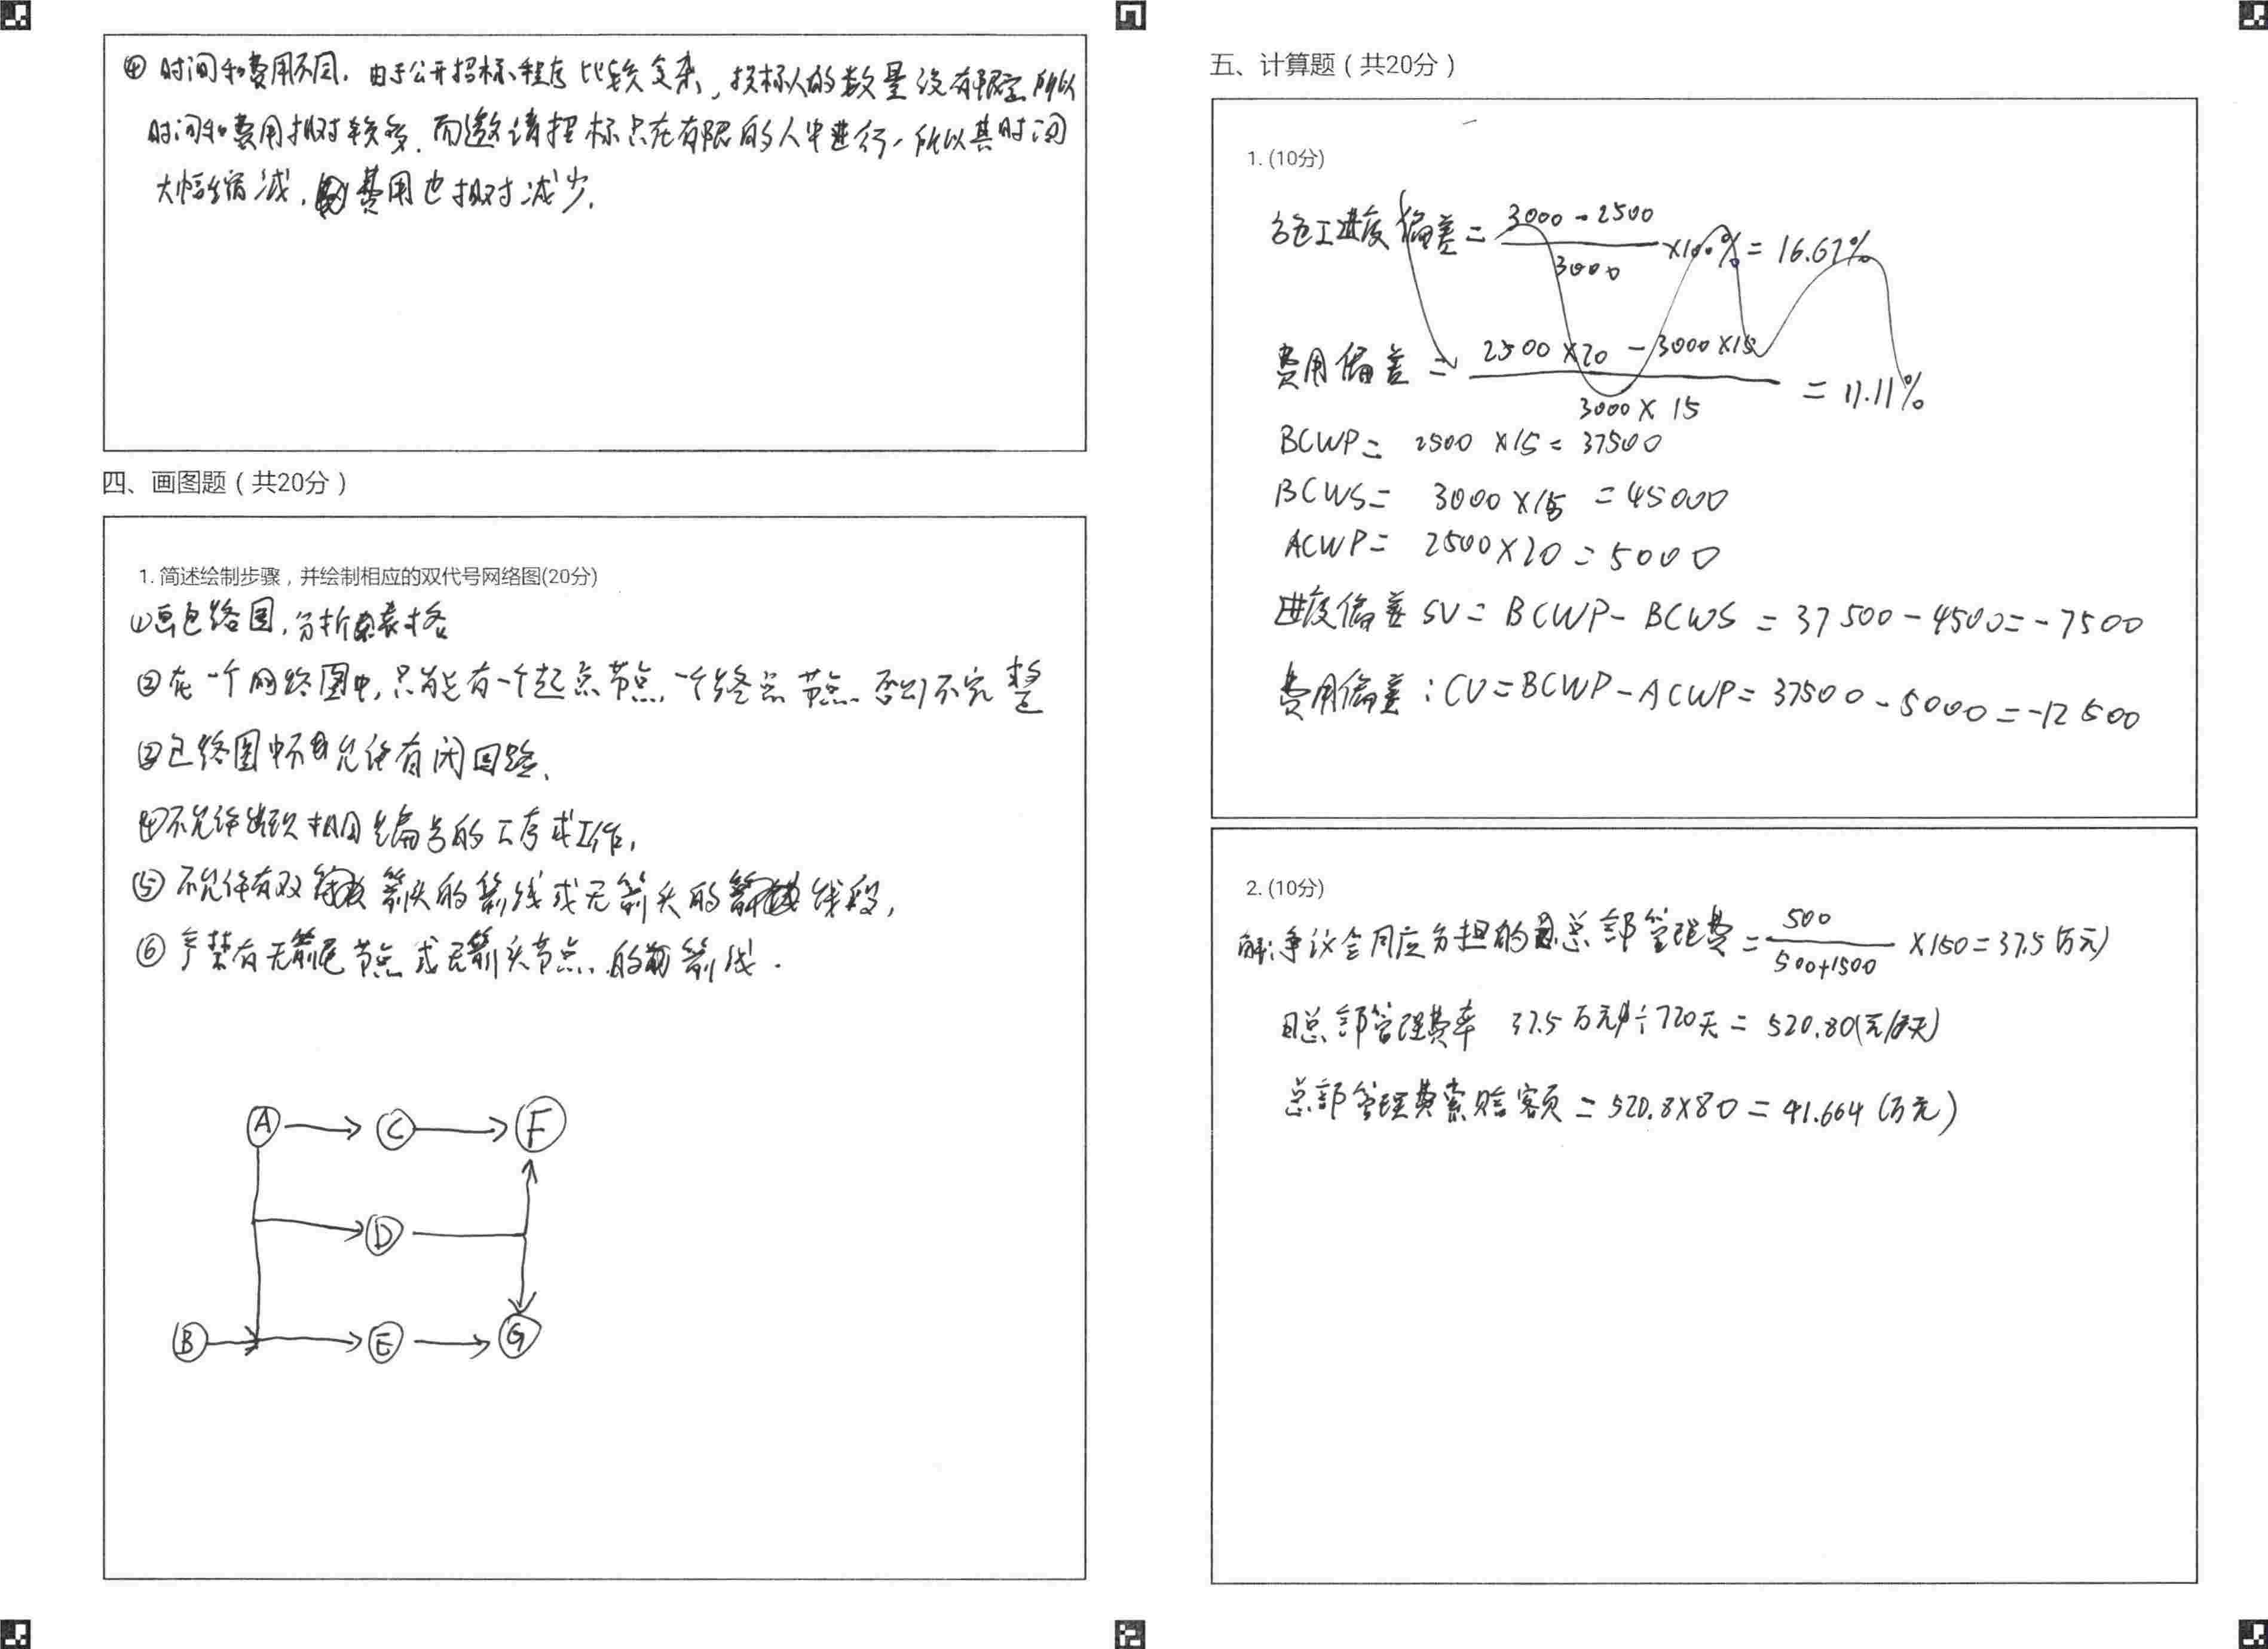 ④时间和费用不同.由于公开招标、程序比较复杂,投标人的数量没有限定所以
时间和费用相对较多.而邀请招标只在有限的人中进行,所以其时间
大幅缩减,费用也相对减少.
四、画图题(共20分)
1. 简述绘制步骤,并绘制相应的双代号网络图(20分)
①画包络图,分析表格
②在一个网络图中,只能有一个起点节点,一个终点节点.否则不完整
③包络图中不允许有闭回路、
④不允许出现相同编号的工序或工作,
⑤不允许有双箭头的箭线或无箭头的线段,
⑥严禁有无箭尾节点或无箭头节点.的箭线.
A C F
D
B E G
五、计算题(共20分)
1. (10分)
进度偏差=(3000-2500)/3000×100%=16.67%
费用偏差=(2500×20-3000×15)/(3000×15)=11.11%
BCWP=2500×15=37500
BCWS=3000×15=45000
ACWP=2500×20=5000
进度偏差SV=BCWP-BCWS=37500-4500=-7500
费用偏差:CV=BCWP-ACWP=37500-5000=-12500
2. (10分)
解:争议合同应分担的总部管理费=500/(500+1500)×150=37.5(万元)
日总部管理费率 37.5万元÷720天=520.80(元/天)
总部管理费索赔额=520.8×80=41.664(万元)